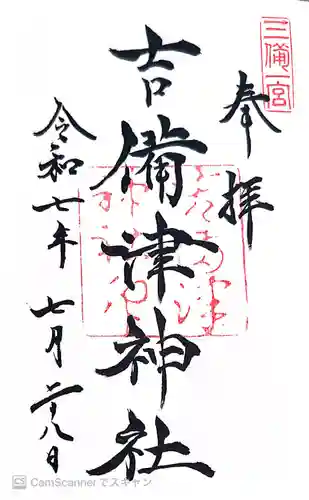 三備一宮
奉拝
吉備津神社
令和七年 七月 二十八日
CamScanner でスキャン